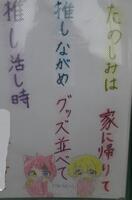 たのしみは
家に帰りて
推しながめ
グッズ並べて
推し活し時